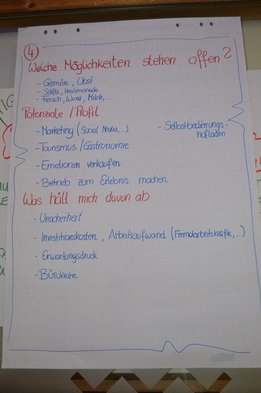 4
Welche Möglichkeiten stehen offen?
- Gemüse, Obst
- Säfte,
- Fleisch, Wurst, Milch,...
Potenziale / Profil
- Marketing (Social Media,..)
- Selbstbedienungs-
hofläden
- Tourismus / Gastronomie
- Emotionen verkaufen
- Betrieb zum Erlebnis machen
Was hält mich davon ab
- Unsicherheit
- Investitionskosten, Arbeitsaufwand (Fremdarbeitskräfte,...)
- Erwartungsdruck
- Bürokratie